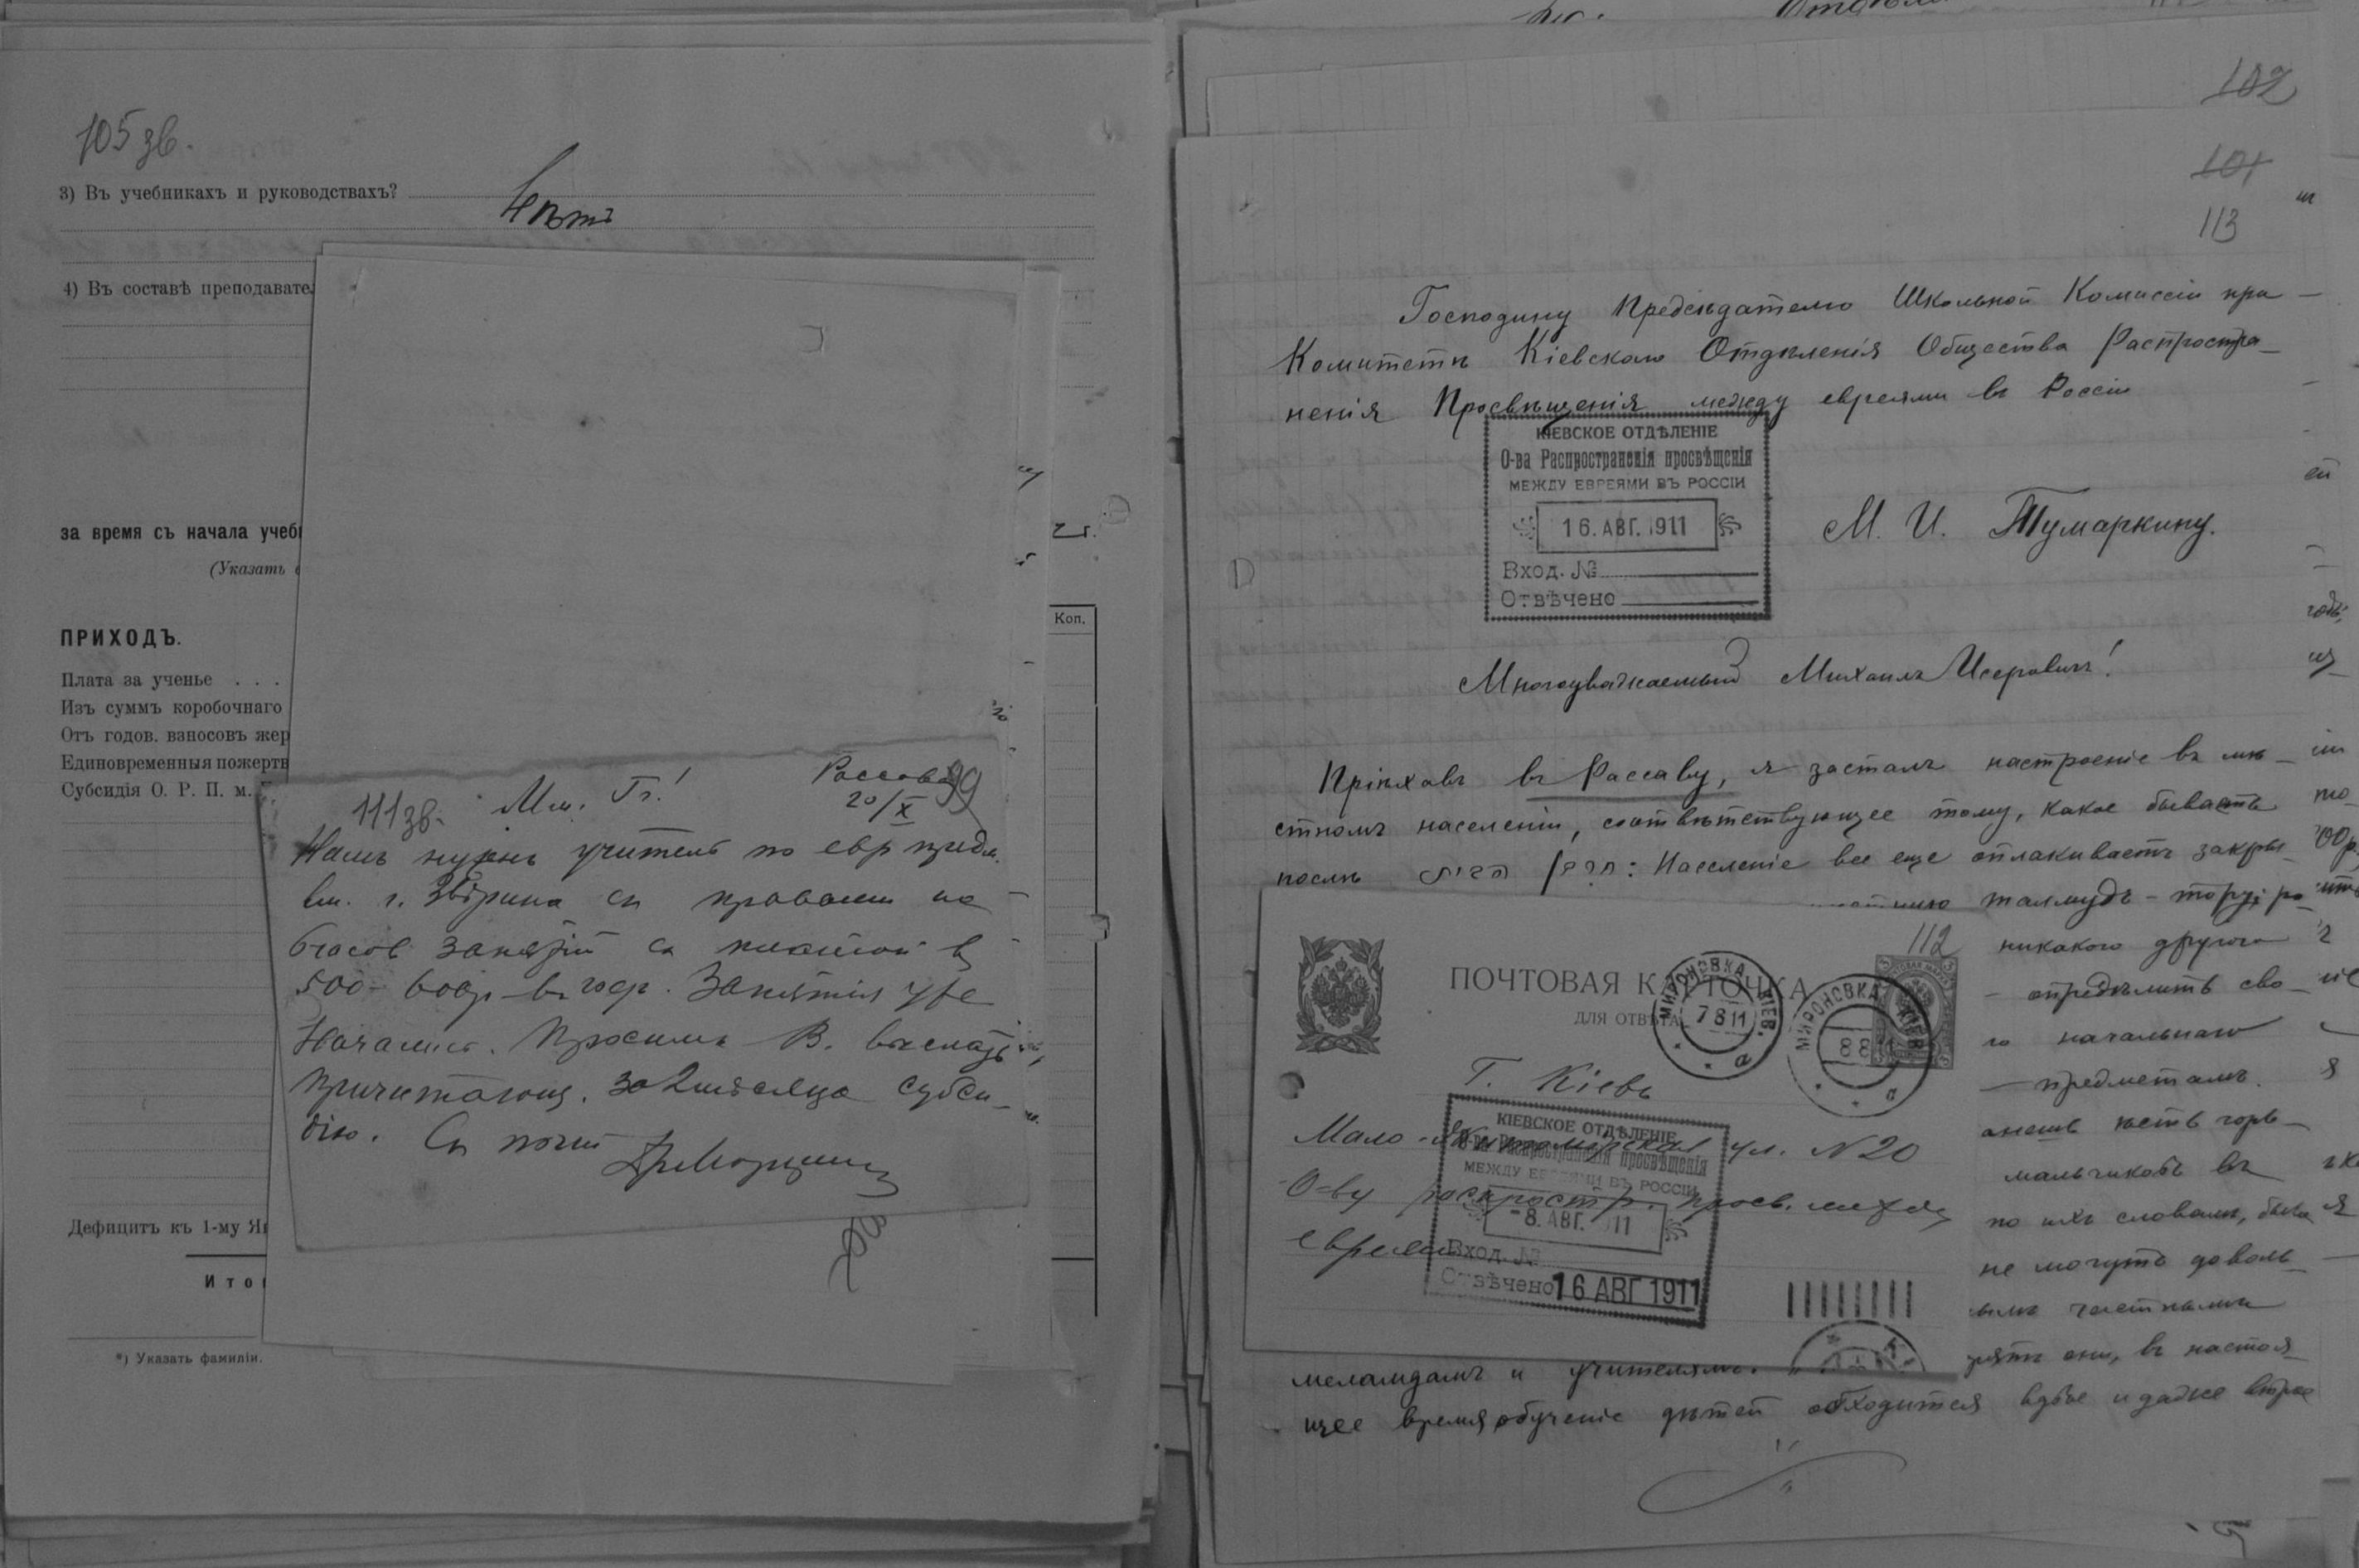 105 зв.
3) Въ учебникахъ и руководствахъ?
Нѣтъ
4) Въ составѣ преподавател
за время съ начала учеб
г.
(Указать
Коп.
ПРИХОДЪ.
Плата за ученье . . .
Изъ суммъ коробочнаго
Отъ годов. взносовъ жер
Единовременныя пожертв
Субсидія О. Р. П. м.
Дефицитъ къ 1-му Я
Ито
*) Указать фамиліи.
111 зв. Мм. Гг! Рассава 99
20/X
Намъ нуженъ учитель по евр предм.
вм. г. съ правами на
6 часов занятій съ платой в
500-600 р въ год. Занятія уже
начались. Просимъ В. выслать
причитающ. за 2 мѣсяца субси-
дію. Съ почт
102
101
113
Господину Предсѣдателю Школьной Комиссіи при
Комитетѣ Кіевскаго Отдѣленія Общества Распростра-
ненія Просвѣщенія между евреями въ Россіи
КІЕВСКОЕ ОТДѢЛЕНІЕ
О-ва Распространенія просвѣщенія
МЕЖДУ ЕВРЕЯМИ ВЪ РОССІИ
16. АВГ. 1911
Вход. №
Отвѣчено
М. И. Тумаркину.
Многоуважаемый Михаилъ Исеровичъ!
Пріѣхавъ въ Рассаву, я засталъ настроеніе въ мѣ-
стномъ населеніи, соотвѣтствующее тому, какое бываетъ
послѣ : Населеніе все еще оплакиваетъ закры-
талмудъ-тору; ро
никакого другого
опредѣлить сво-
го начальнаго
предметамъ.
анешъ есть горь-
мальчиковъ въ
по ихъ словамъ, была
не могутъ доволь-
нымъ частнымъ
рятъ они, въ настоя-
меламдамъ и учителямъ.
щее время, обученіе дѣтей обходится вдвое и даже втрое
112
ПОЧТОВАЯ КАРТОЧКА
ДЛЯ ОТВѢТА
МИРОНОВКА КІЕВ.
7 8 11
а
МИРОНОВКА КІЕВ.
8 8 11
а
Г. Кіевъ
Мало-Житомірская ул. № 20
О-ву распростр. просв. между
евреями
КІЕВСКОЕ ОТДѢЛЕНІЕ
О-ва Распространенія просвѣщенія
МЕЖДУ ЕВРЕЯМИ ВЪ РОССІИ
-8. АВГ. 1911
Вход. №
Отвѣчено 16 АВГ 1911